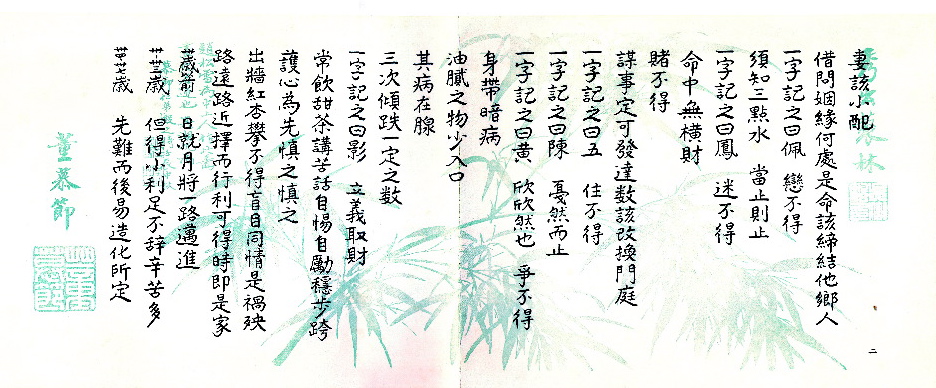 妻該小配
借問姻緣何處是命該締結他鄉人
一字記之曰佩　戀不得
須知三點水　當止則止
一字記之曰鳳　迷不得
命中無橫財
賭不得
謀事定可發達數該改換門庭
一字記之曰五　住不得
一字記之曰陳　戞然而止
一字記之曰黄　欣欣然也　爭不得
身帶暗病
油膩之物少入口
其病在腺
三次傾跌一定之數
一字記之曰影　立義取財
常飲甜茶講苦話自惕自勵穩步跨
護心為先慎之慎之
出牆紅杏攀不得盲目同情是禍殃
路遠路近擇而行利可得時即是家
卌歲前　日就月將一路邁進
但得小利足不辞辛苦多
先難而後易造化所定
董慕節
二